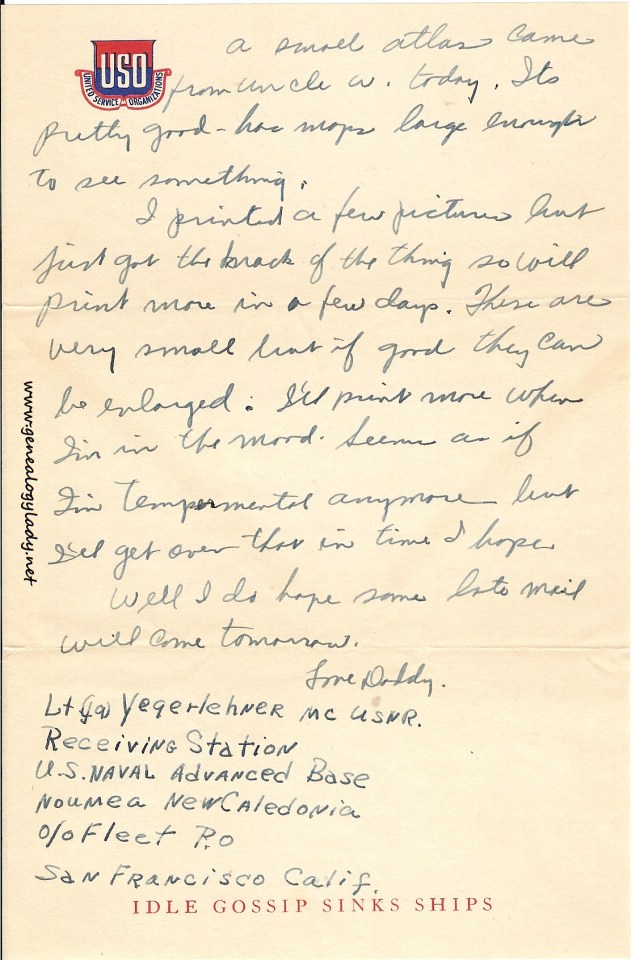 USO
UNITED SERVICE ORGANIZATIONS
a small atlas came
from uncle W. today. Its
pretty good - has maps large enough
to see something.
I printed a few pictures but
just got the knack of the thing so will
print more in a few days. These are
very small but if good they can
be enlarged. I'll print more when
I'm in the mood. Seems as if
I'm tempermental anymore but
I'll get over that in time I hope.
Well I do hope some late mail
will come tomorrow.
Love Daddy.
Lt (jg) Yegerlehner MC USNR.
Receiving Station
U.S. Naval Advanced Base
Noumea New Caledonia
c/o Fleet P.O
San Francisco Calif.
IDLE GOSSIP SINKS SHIPS
www.genealogylady.net